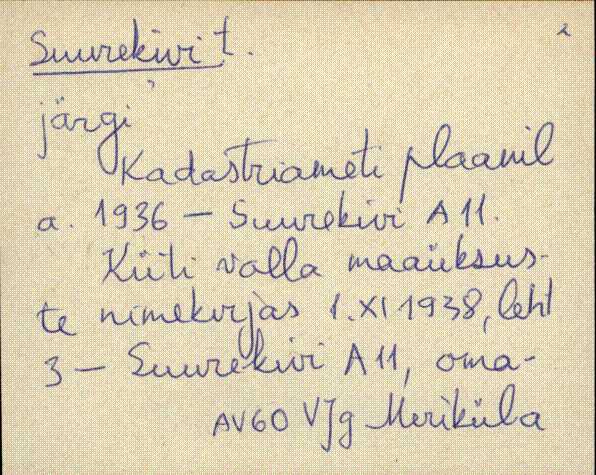 Suurekivi t. 2
järgi
Kadastriameti plaanil
a. 1936 — Suurekivi A 11.
Küti valla maaüksus-
te nimekirjas 1.XI 1938, leht
3 — Suurekivi A 11, oma-
AV60 VJg Meriküla